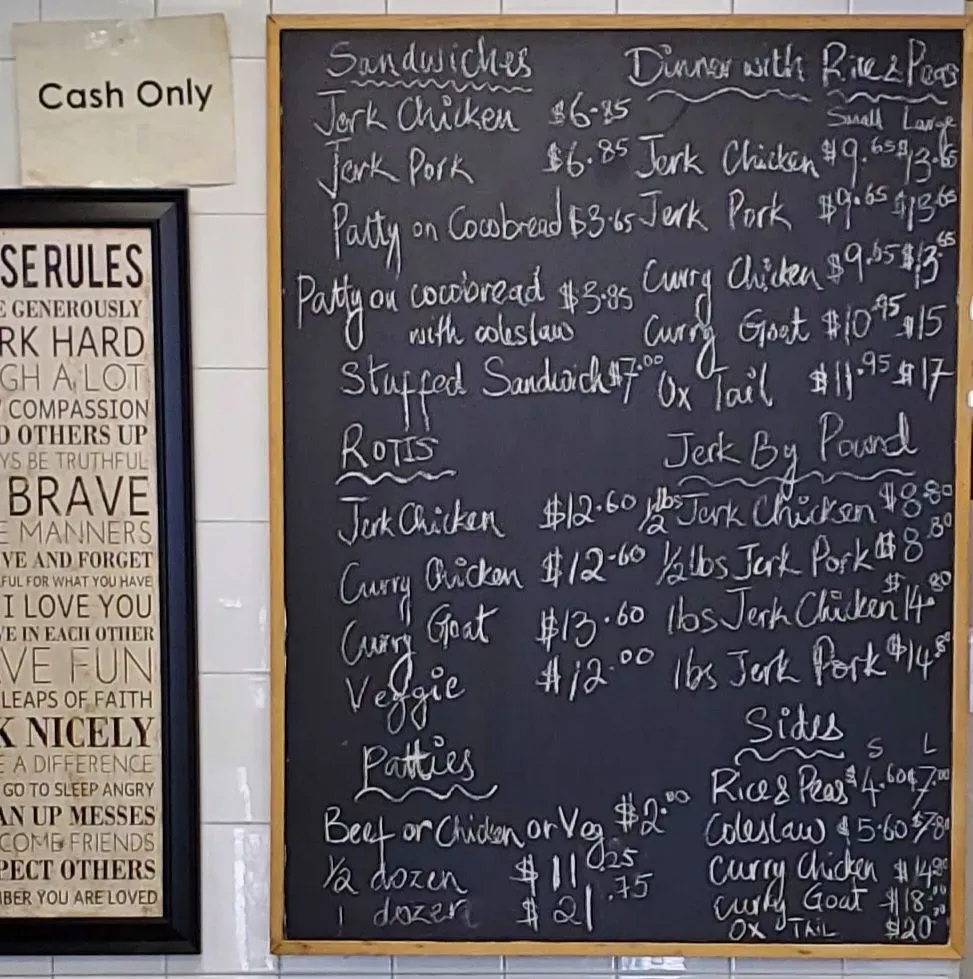 Cash Only
SERULES
E GENEROUSLY
RK HARD
GH A LOT
COMPASSION
D OTHERS UP
YS BE TRUTHFUL
BRAVE
E MANNERS
VE AND FORGET
FUL FOR WHAT YOU HAVE
I LOVE YOU
VE IN EACH OTHER
AVE FUN
LEAPS OF FAITH
K NICELY
E A DIFFERENCE
GO TO SLEEP ANGRY
AN UP MESSES
COME FRIENDS
PECT OTHERS
BER YOU ARE LOVED
Sandwiches
Jerk Chicken $6.85
Jerk Pork $6.85
Patty on Cocobread $3.65
Patty on cocobread $3.85
with coleslaw
Stuffed Sandwich $7.00
ROTIS
Jerk Chicken $12.60
Curry Chicken $12.60
Curry Goat $13.60
Veggie $12.00
Patties
Beef or Chicken or Veg $2.00
1/2 dozen $11.25
1 dozen $21.75
Dinner with Rice & Peas
Small Large
Jerk Chicken $9.65 $13.65
Jerk Pork $9.65 $13.65
Curry Chicken $9.65 $13.65
Curry Goat $10.95 $15
Ox Tail $11.95 $17
Jerk By Pound
1/2 lbs Jerk Chicken $8.80
1/2 lbs Jerk Pork $8.80
lbs Jerk Chicken $14.80
lbs Jerk Pork $14.80
Sides
S L
Rice & Peas $4.60 $7.00
Coleslaw $5.60 $7.80
Curry Chicken $14.80
Curry Goat $18.00
OX TAIL $20